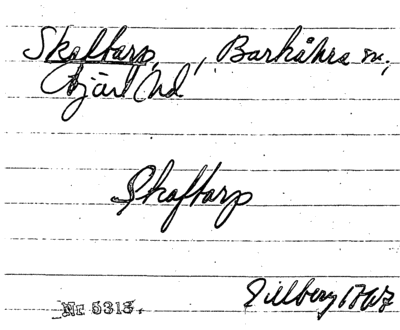 Skaftarp, Barkåkra sn,
Bjäre hd
Skaftarp
Gillberg 1765
Nr 5313.